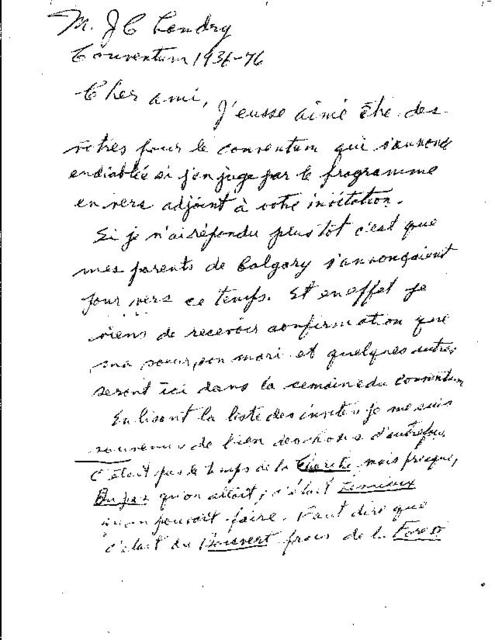 M. J C Landry
Conventum 1936-76
Cher ami, J'eusse aimé être des
vôtres pour le conventum qui s'annonce
endiablée si j'en juge par le programme
en vers adjoint à votre invitation.
Si je n'ai répondu plus tôt c'est que
mes parents de Calgary s'annonçaient
pour vers ce temps. Et en effet je
viens de recevoir confirmation que
ma soeur, son mari et quelques autres
seront ici dans la semaine du conventum
En lisant la liste des invités je me suis
souvenu de bien des choses d'autrefois
C'était pas le temps de la Charité mais presque,
Au pas qu'on allait; c'était
qu'on pouvait faire. Faut dire que
c'était du Boisvert frais de la Forest